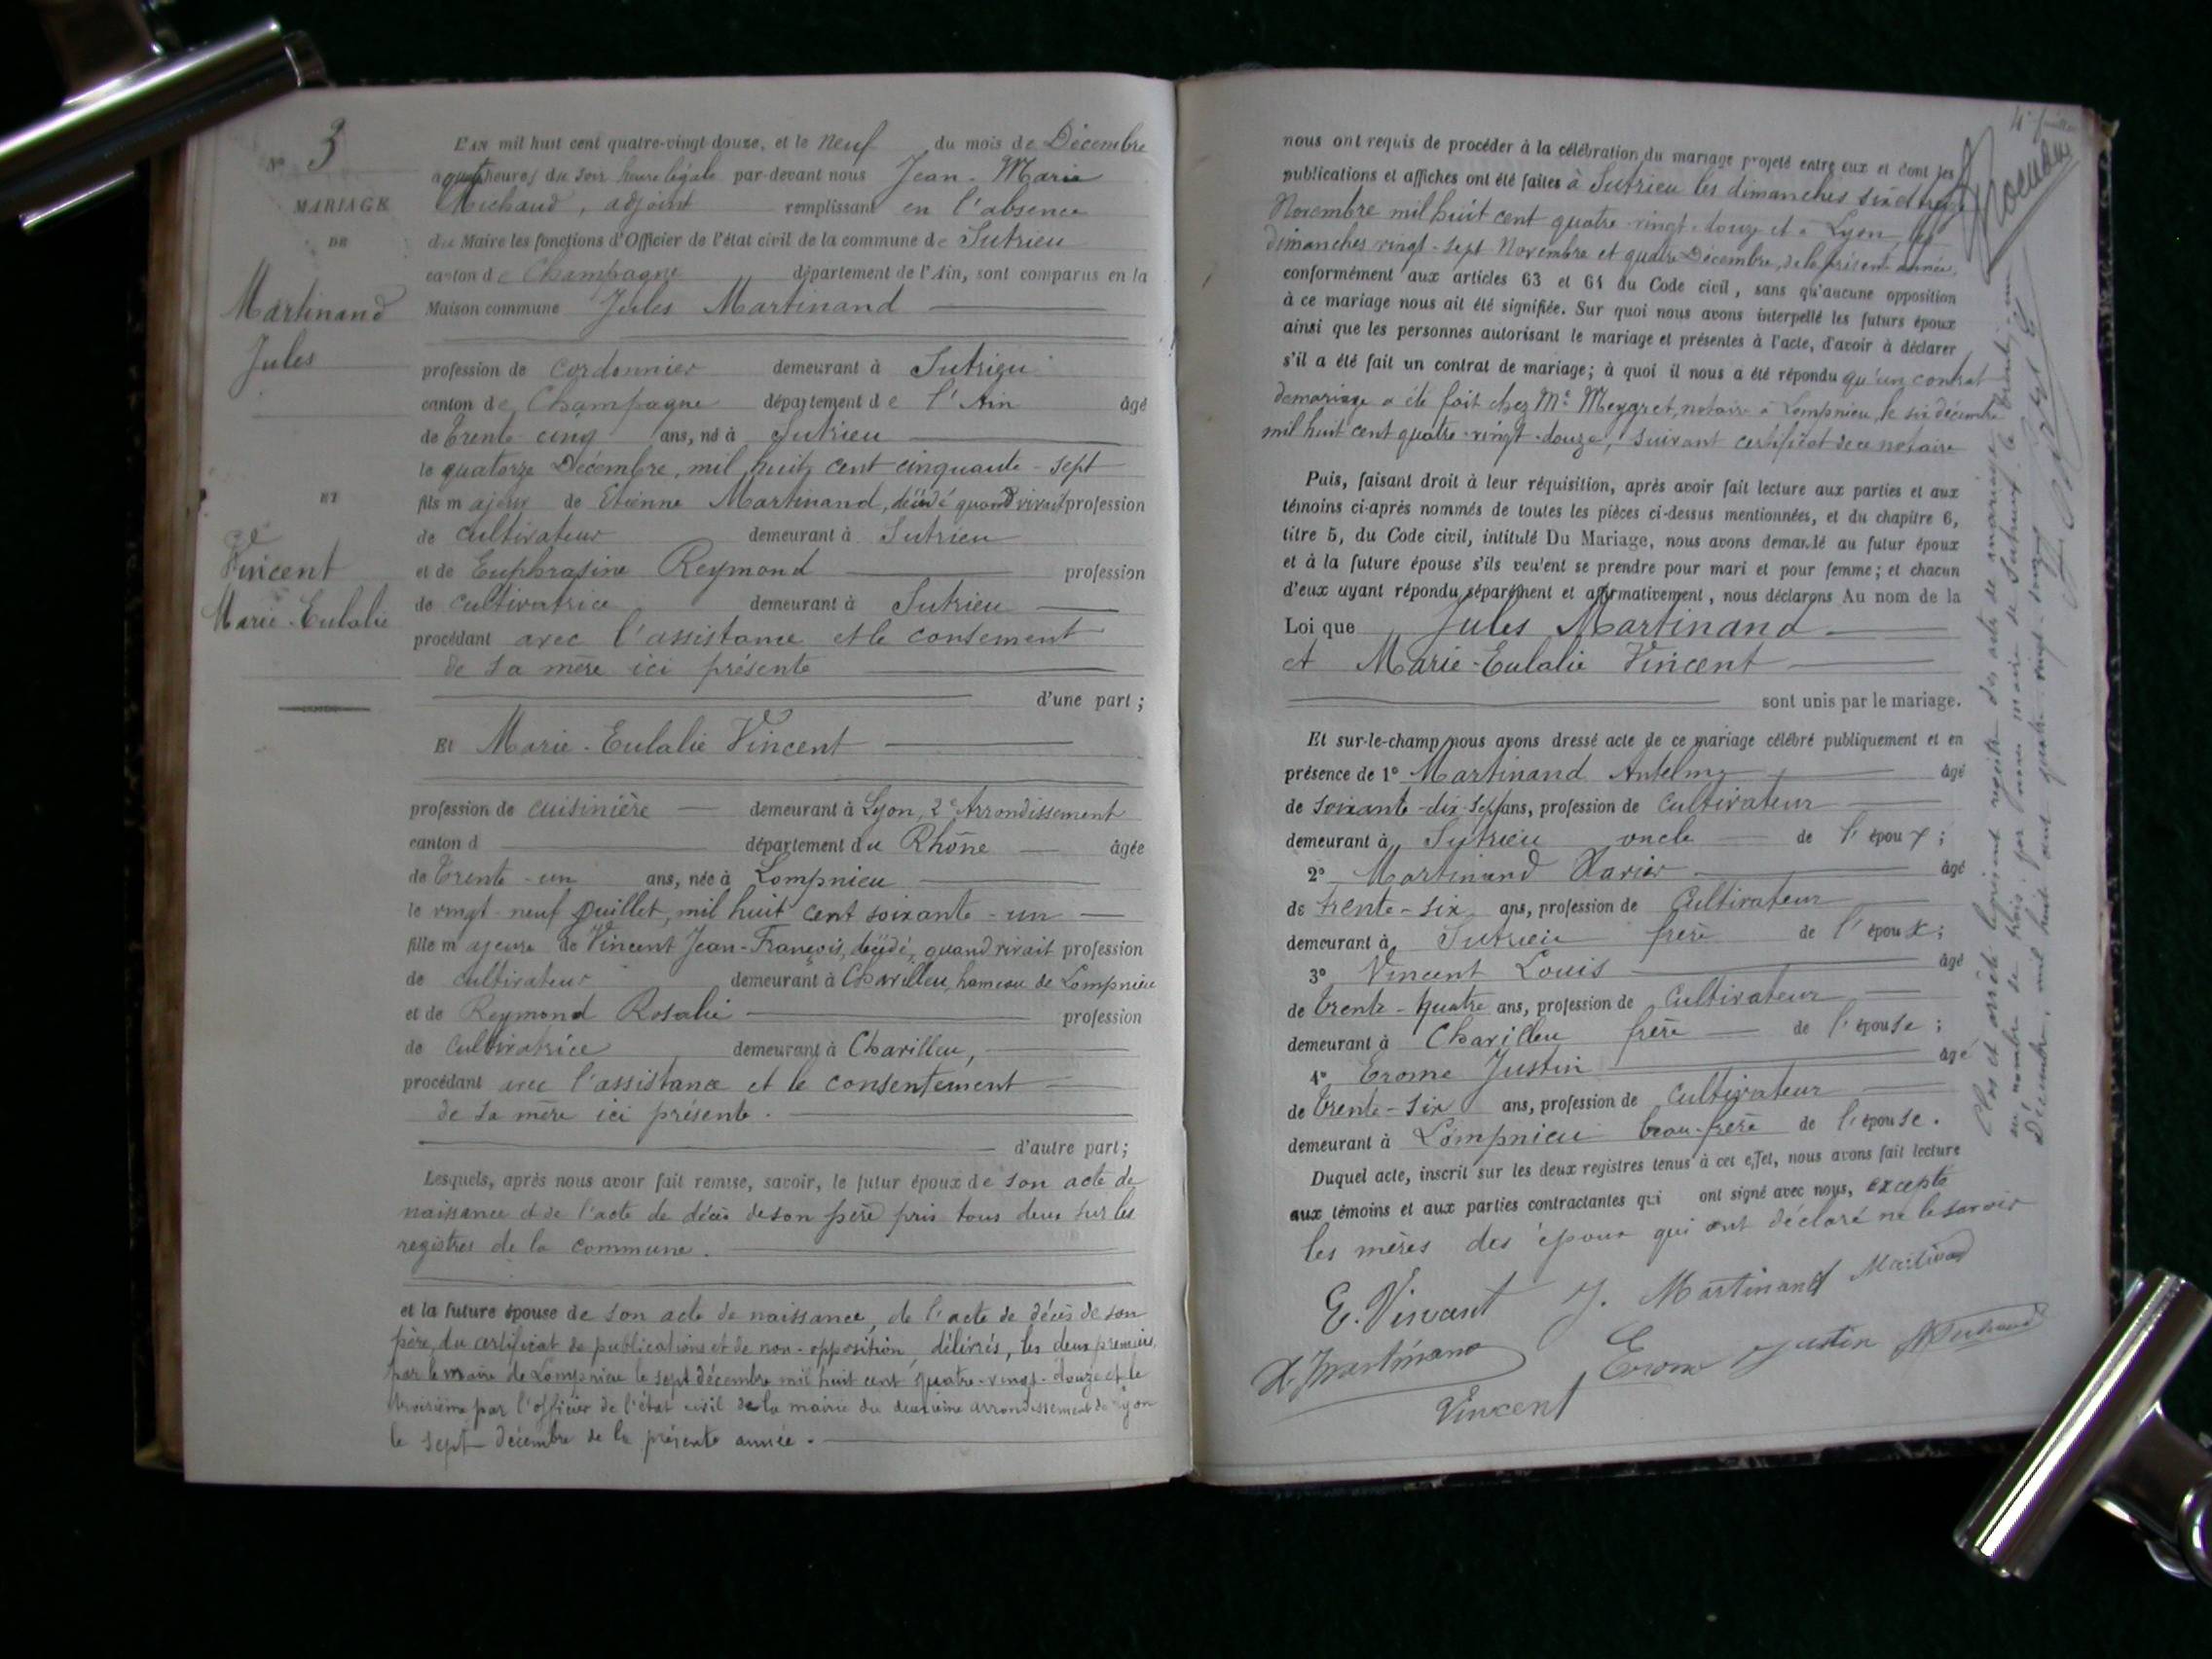 N° 3
MARIAGE
DE
Martinand
Jules
ET
Vincent
Marie-Eulalie
L'AN mil huit cent quatre-vingt-douze, et le neuf du mois de Décembre
heures du soir heure légale par-devant nous Jean-Marie
Michaud, adjoint remplissant en l'absence
du Maire les fonctions d'Officier de l'état civil de la commune de Sutrieu
canton de Champagne département de l'Ain, sont comparus en la
Maison commune Jules Martinand
profession de cordonnier demeurant à Sutrieu
canton de Champagne département de l'Ain âgé
de trente-cinq ans, né à Sutrieu
le quatorze Décembre, mil huit cent cinquante-sept
fils majeur de Etienne Martinand, décédé quand vivait profession
de cultivateur demeurant à Sutrieu
et de Euphrasine Reymond profession
de cultivatrice demeurant à Sutrieu
procédant avec l'assistance et le consement
de sa mère ici présente
d'une part;
Et Marie-Eulalie Vincent
profession de cuisinière demeurant à Lyon, 2e Arrondissement
canton d département du Rhône âgée
de trente-un ans, née à Lompnieu
le vingt-neuf Juillet, mil huit cent soixante-un
fille majeure de Vincent Jean-François, décédé, quand vivait profession
de cultivateur demeurant à Charilleu, hameau de Lompnieu
et de Reymond Rosalie profession
de cultivatrice demeurant à Charilleu,
procédant avec l'assistance et le consentement
de sa mère ici présente.
d'autre part;
Lesquels, après nous avoir fait remise, savoir, le futur époux de son acte de
naissance et de l'acte de décès de son père pris tous deux sur les
registres de la commune.
et la future épouse de son acte de naissance, de l'acte de décès de son
père, du certificat de publications et de non-opposition, délivrés, les deux premiers,
par le maire de Lompnieu le sept décembre mil huit cent quatre-vingt-douze et le
troisième par l'officier de l'état civil de la mairie du deuxième arrondissement de Lyon
le sept décembre de la présente année.
nous ont requis de procéder à la célébration du mariage projeté entre eux et dont les
publications et affiches ont été faites à Sutrieu les dimanches six et treize
Novembre mil huit cent quatre-vingt-douze et à Lyon, les
dimanches vingt-sept Novembre et quatre Décembre, de la présent année,
conformément aux articles 63 et 64 du Code civil, sans qu'aucune opposition
à ce mariage nous ait été signifiée. Sur quoi nous avons interpellé les futurs époux
ainsi que les personnes autorisant le mariage et présentes à l'acte, d'avoir à déclarer
s'il a été fait un contrat de mariage; à quoi il nous a été répondu qu'un contrat
de mariage a été fait chez Me Meygret, notaire à Lompnieu, le six décembre
mil huit cent quatre-vingt-douze, suivant certificat de ce notaire
Puis, faisant droit à leur réquisition, après avoir fait lecture aux parties et aux
témoins ci-après nommés de toutes les pièces ci-dessus mentionnées, et du chapitre 6,
titre 5, du Code civil, intitulé Du Mariage, nous avons demandé au futur époux
et à la future épouse s'ils veulent se prendre pour mari et pour femme; et chacun
d'eux ayant répondu séparément et affirmativement, nous déclarons Au nom de la
Loi que Jules Martinand
et Marie-Eulalie Vincent
sont unis par le mariage.
Et sur-le-champ nous avons dressé acte de ce mariage célébré publiquement et en
présence de 1° Martinand Antelme âgé
de soixante-dix-sept ans, profession de cultivateur
demeurant à Sutrieu oncle de l'époux;
2° Martinand Xavier âgé
de trente-six ans, profession de cultivateur
demeurant à Sutrieu frère de l'époux;
3° Vincent Louis âgé
de trente-quatre ans, profession de cultivateur
demeurant à Charilleu frère de l'épouse;
4° Erome Justin âgé
de trente-six ans, profession de cultivateur
demeurant à Lompnieu beau-frère de l'épouse.
Duquel acte, inscrit sur les deux registres tenus à cet effet, nous avons fait lecture
aux témoins et aux parties contractantes qui ont signé avec nous, excepté
les mères des époux qui ont déclaré ne le savoir
E. Vincent J. Martinand Martinand
X. Martinand Erome Justin Michaud
Vincent
4e feuillet
Clos et arrêté le présent registre des actes de mariage
au nombre de trois par nous maire de Sutrieu, le trente-un
Décembre, mil huit cent quatre-vingt-douze